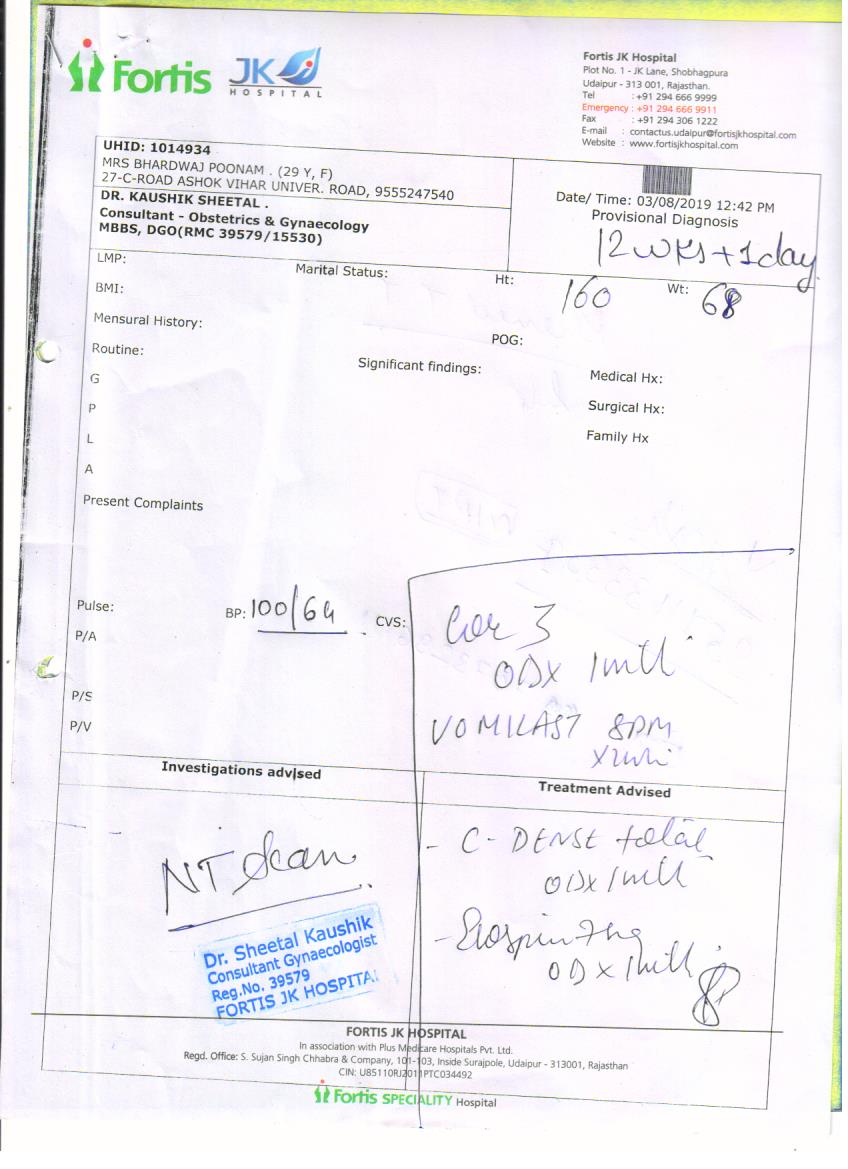 Fortis JK HOSPITAL
Fortis JK Hospital
Plot No. 1 - JK Lane, Shobhagpura
Udaipur - 313 001, Rajasthan.
Tel : +91 294 666 9999
Emergency : +91 294 666 9911
Fax : +91 294 306 1222
E-mail : contactus.udaipur@fortisjkhospital.com
Website : www.fortisjkhospital.com
UHID: 1014934
MRS BHARDWAJ POONAM . (29 Y, F)
27-C-ROAD ASHOK VIHAR UNIVER. ROAD, 9555247540
DR. KAUSHIK SHEETAL .
Consultant - Obstetrics & Gynaecology
MBBS, DGO(RMC 39579/15530)
Date/ Time: 03/08/2019 12:42 PM
Provisional Diagnosis
12 wks + 1 day
LMP:
Marital Status:
Ht: 160
Wt: 68
BMI:
Mensural History:
POG:
Routine:
Significant findings:
Medical Hx:
G
Surgical Hx:
P
Family Hx
L
A
Present Complaints
Pulse:
BP: 100/64
CVS:
P/A
3
OD x 1
VOMIKAST
P/S
P/V
Investigations advised
Treatment Advised
NT Scan
- C-DENSE total
OD x 1
OD x 1
Dr. Sheetal Kaushik
Consultant Gynaecologist
Reg.No. 39579
FORTIS JK HOSPITAL
FORTIS JK HOSPITAL
In association with Plus Medicare Hospitals Pvt. Ltd.
Regd. Office: S. Sujan Singh Chhabra & Company, 101-103, Inside Surajpole, Udaipur - 313001, Rajasthan
CIN: U85110RJ2011PTC034492
Fortis SPECIALITY Hospital